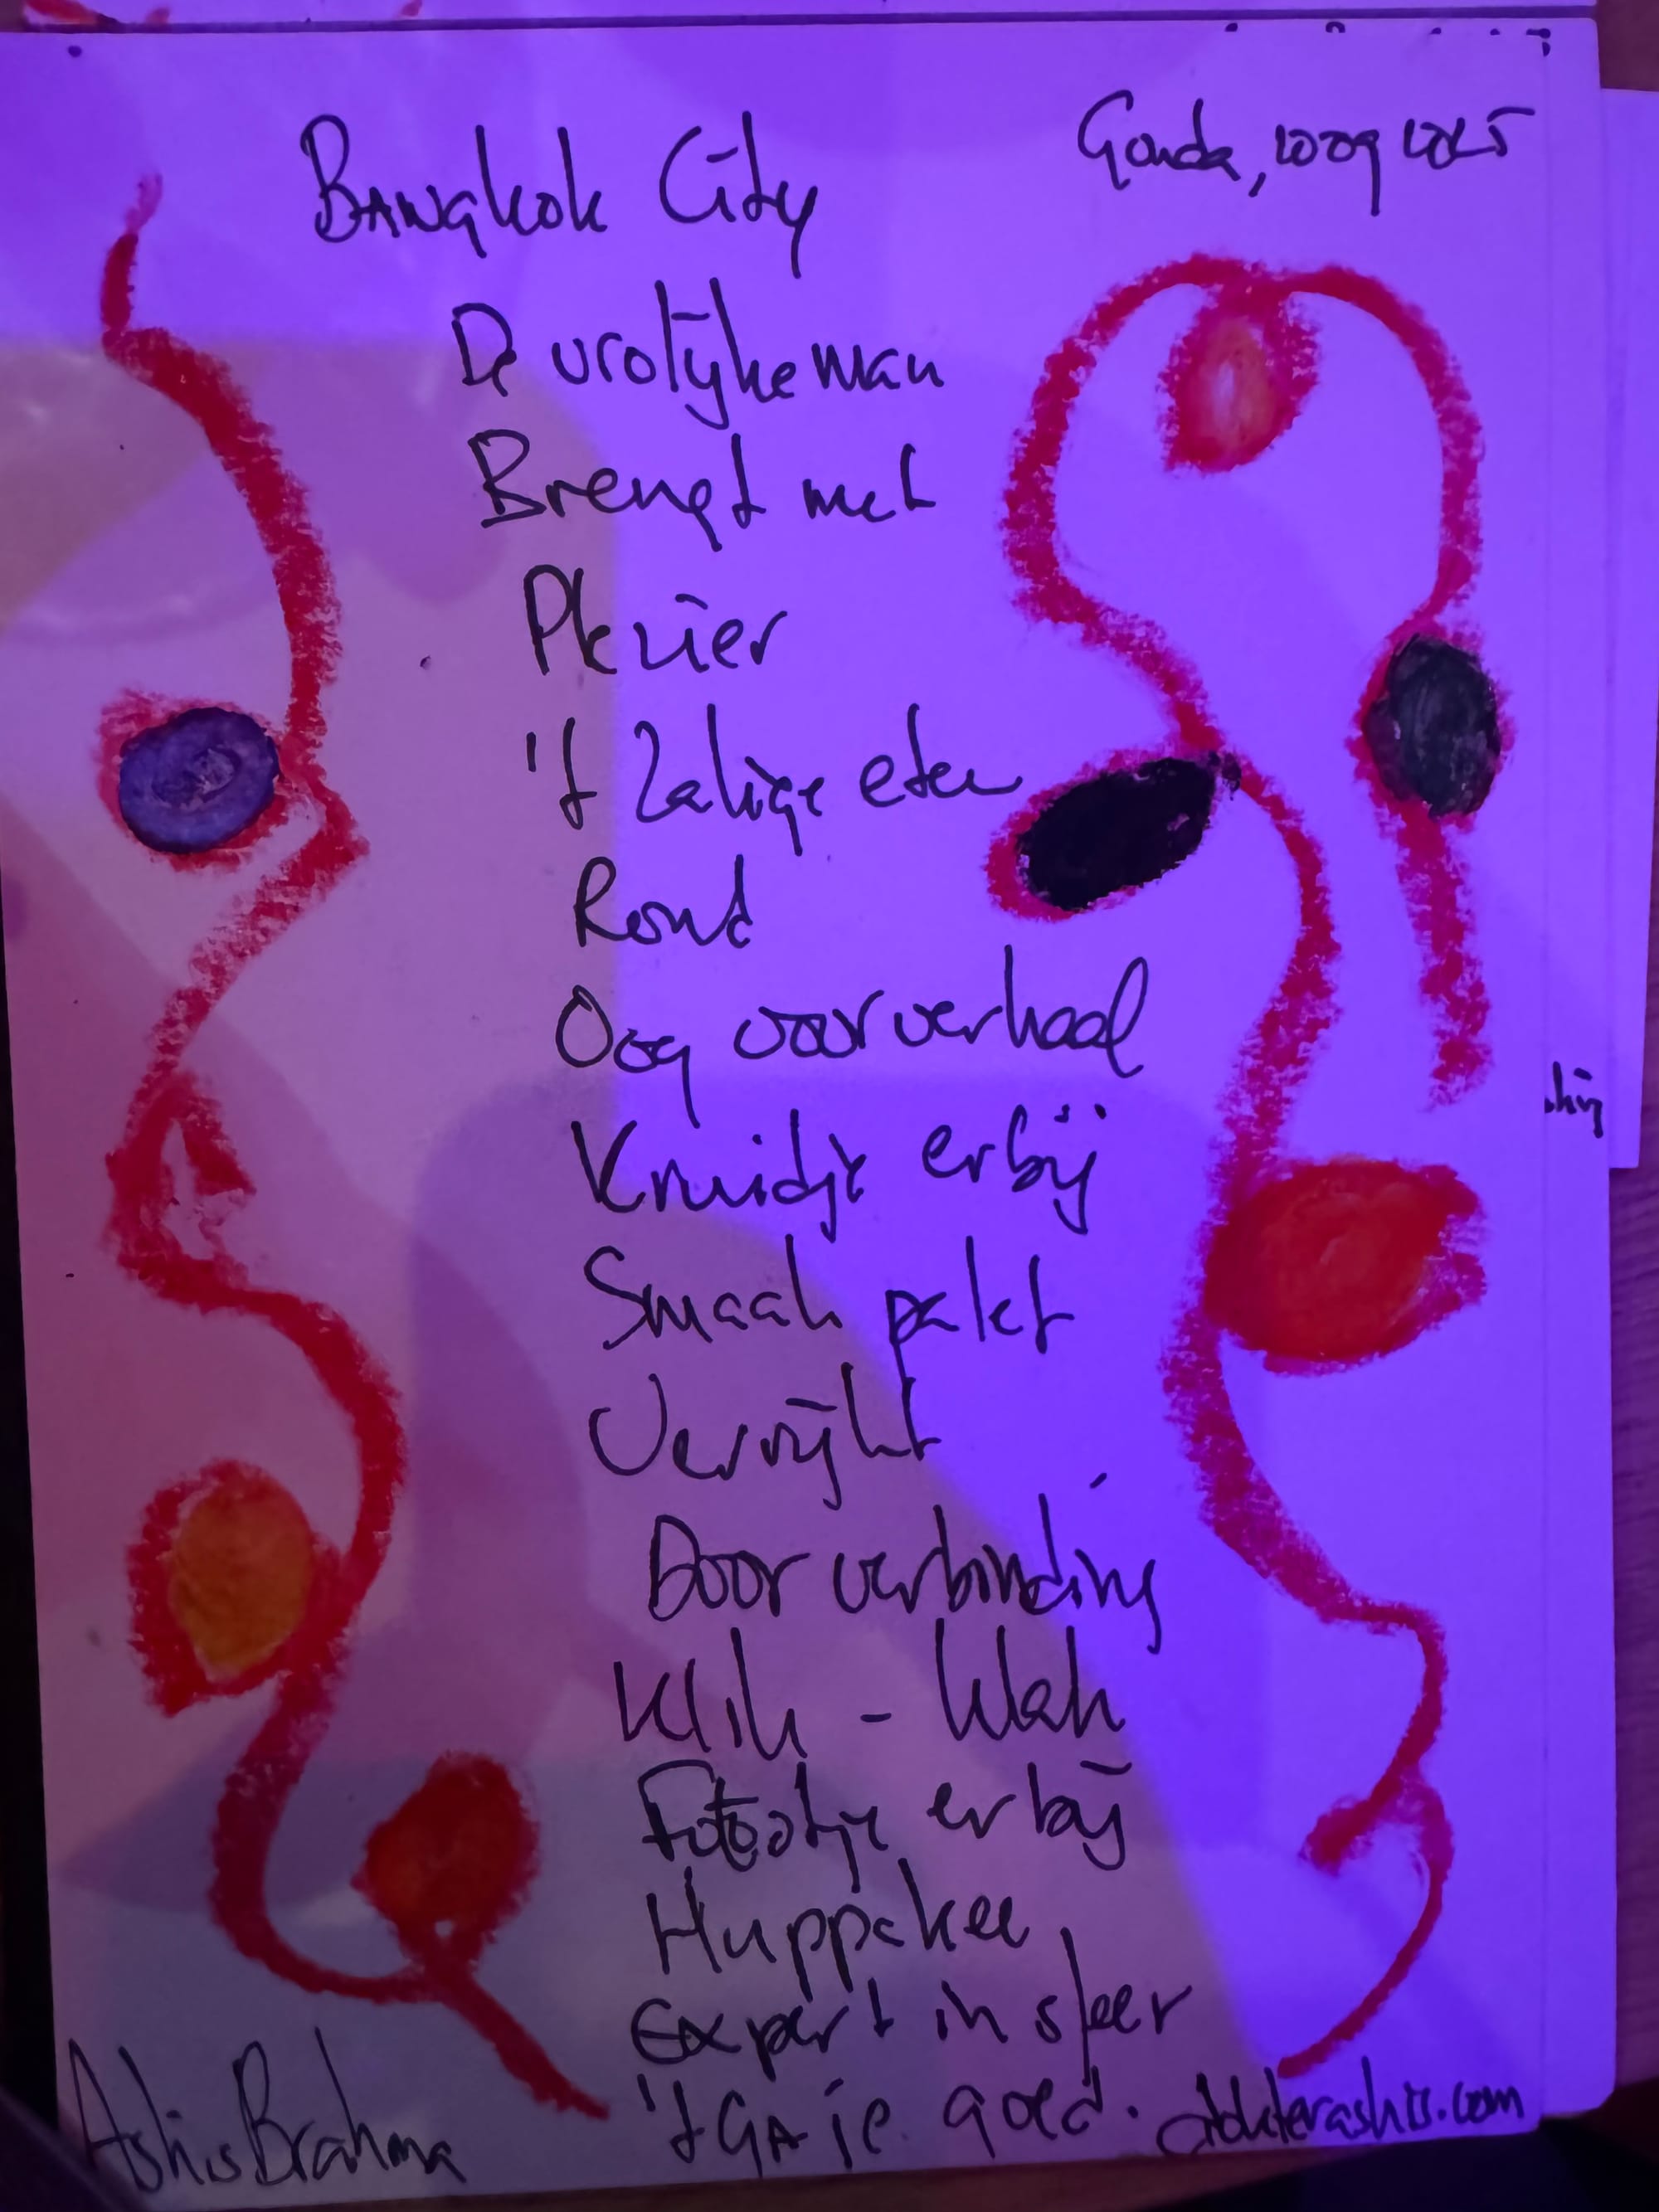 Bangkok City
Gouda, 1009 2025
De vrolijke man
Brengt met
Plezier
't Zalige eten
Rond
Oog voor verhaal
Kruidje erbij
Smaak palet
Verrijkt
Door verbinding
Klik - Wah
Fotootje er bij
Huppakee
Expert in sfeer
't GA je goed.
Ashis Brahma
dokterashis.com